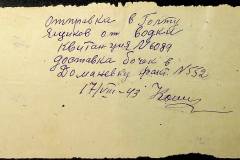 отправка в Голту
Ящиков от водки
Квитанция №6089
доставка бочек в
Доманевку факт. №552
17/VIII-43